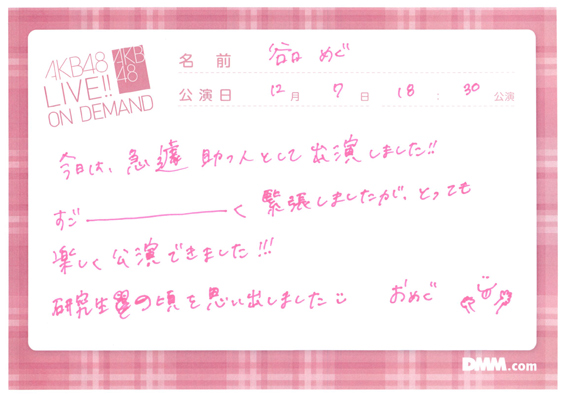 AKB48
LIVE!!
ON DEMAND
AKB
48
名前 谷口 めぐ
公演日 12月 7日 18:30公演
今日は、急遽 助っ人として出演しました!!
すご――――く 緊張しましたが、とっても
楽しく公演できました!!!
研究生の頃を思い出しました おめぐ
DMM.com